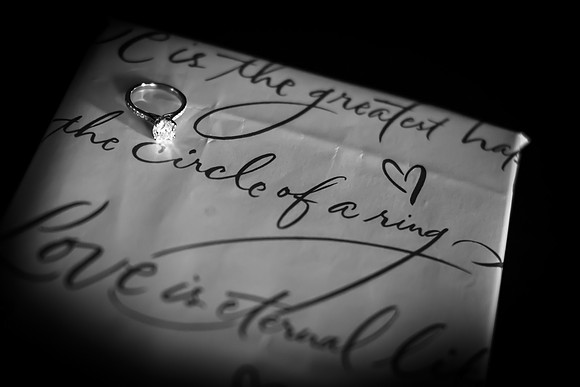 is the greatest
the Circle of a ring
Love is eternal